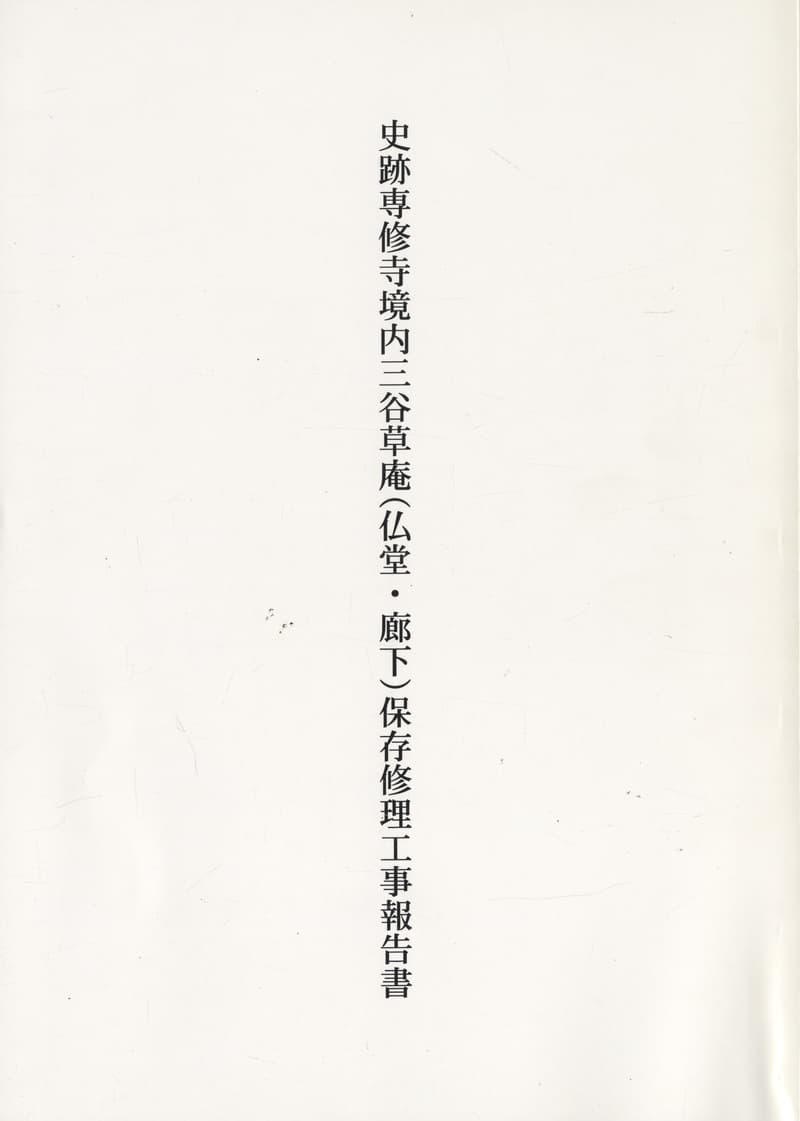 史跡専修寺境内三谷草庵(仏堂・廊下)保存修理工事報告書